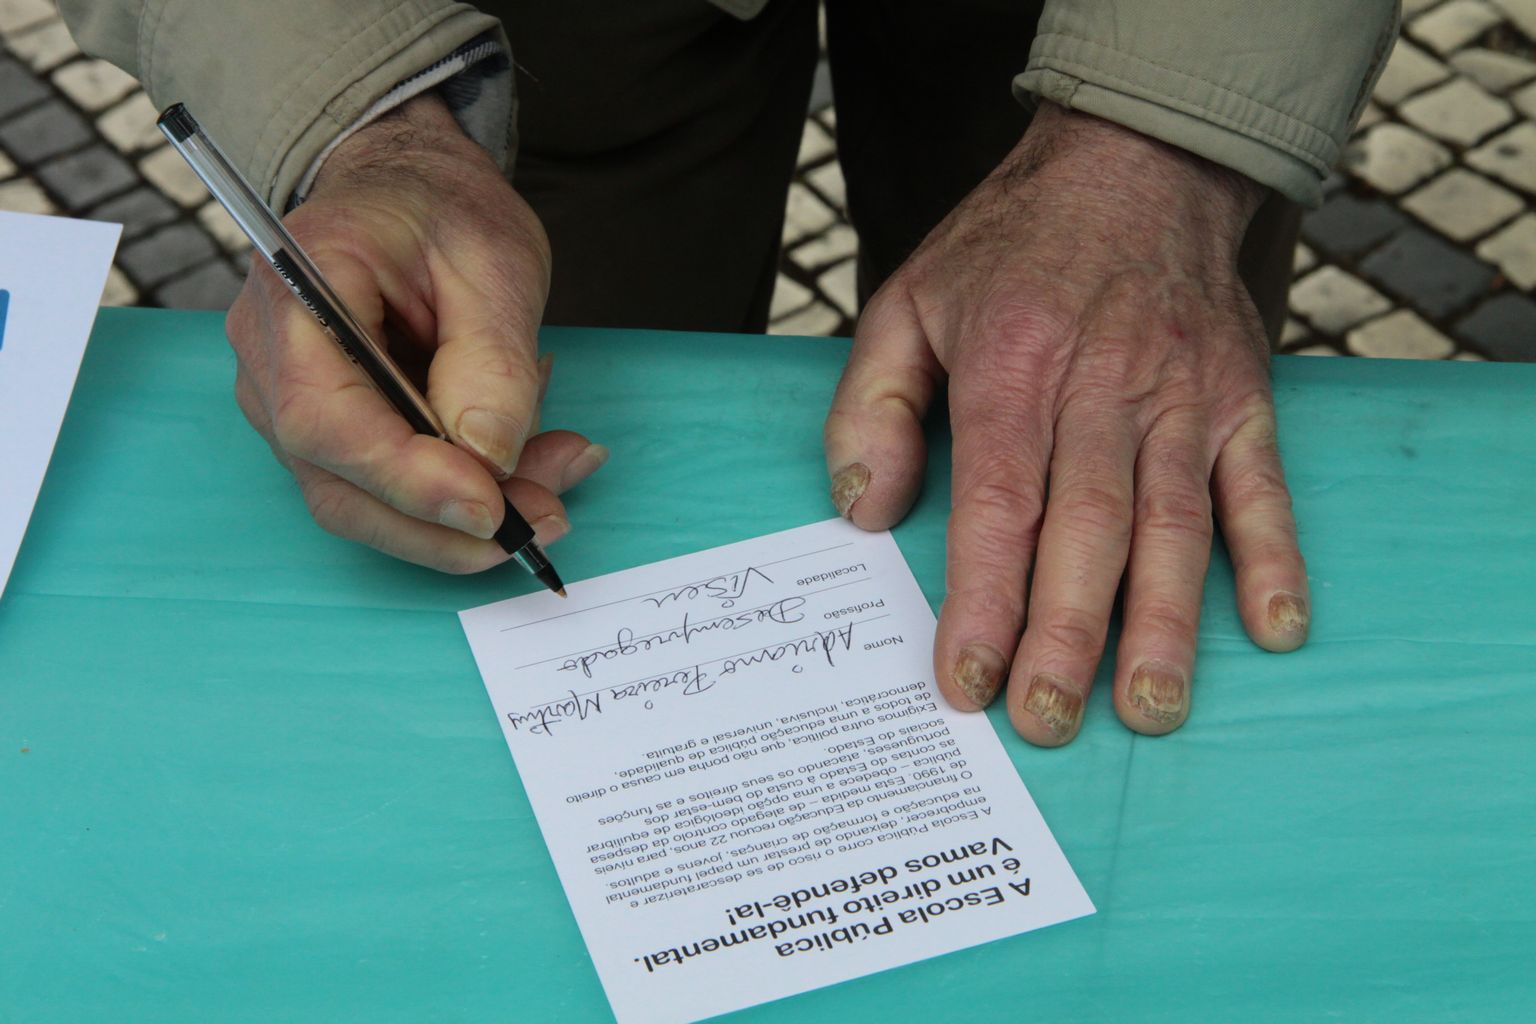 A Escola Pública
é um direito fundamental.
Vamos defendê-la!
A Escola Pública corre o risco de se descaraterizar e
empobrecer, deixando de prestar um papel fundamental
na educação e formação de crianças, jovens e adultos.
O financiamento da Educação recuou 22 anos, para níveis
de 1990. Esta medida – de alegado controlo da despesa
pública – obedece a uma opção ideológica de equilibrar
as contas do Estado à custa do bem-estar dos
portugueses, atacando os seus direitos e as funções
sociais do Estado.
Exigimos outra política, que não ponha em causa o direito
de todos a uma educação pública de qualidade,
democrática, inclusiva, universal e gratuita.
Nome Adriano Pereira Martins
Profissão Desempregado
Localidade Viseu